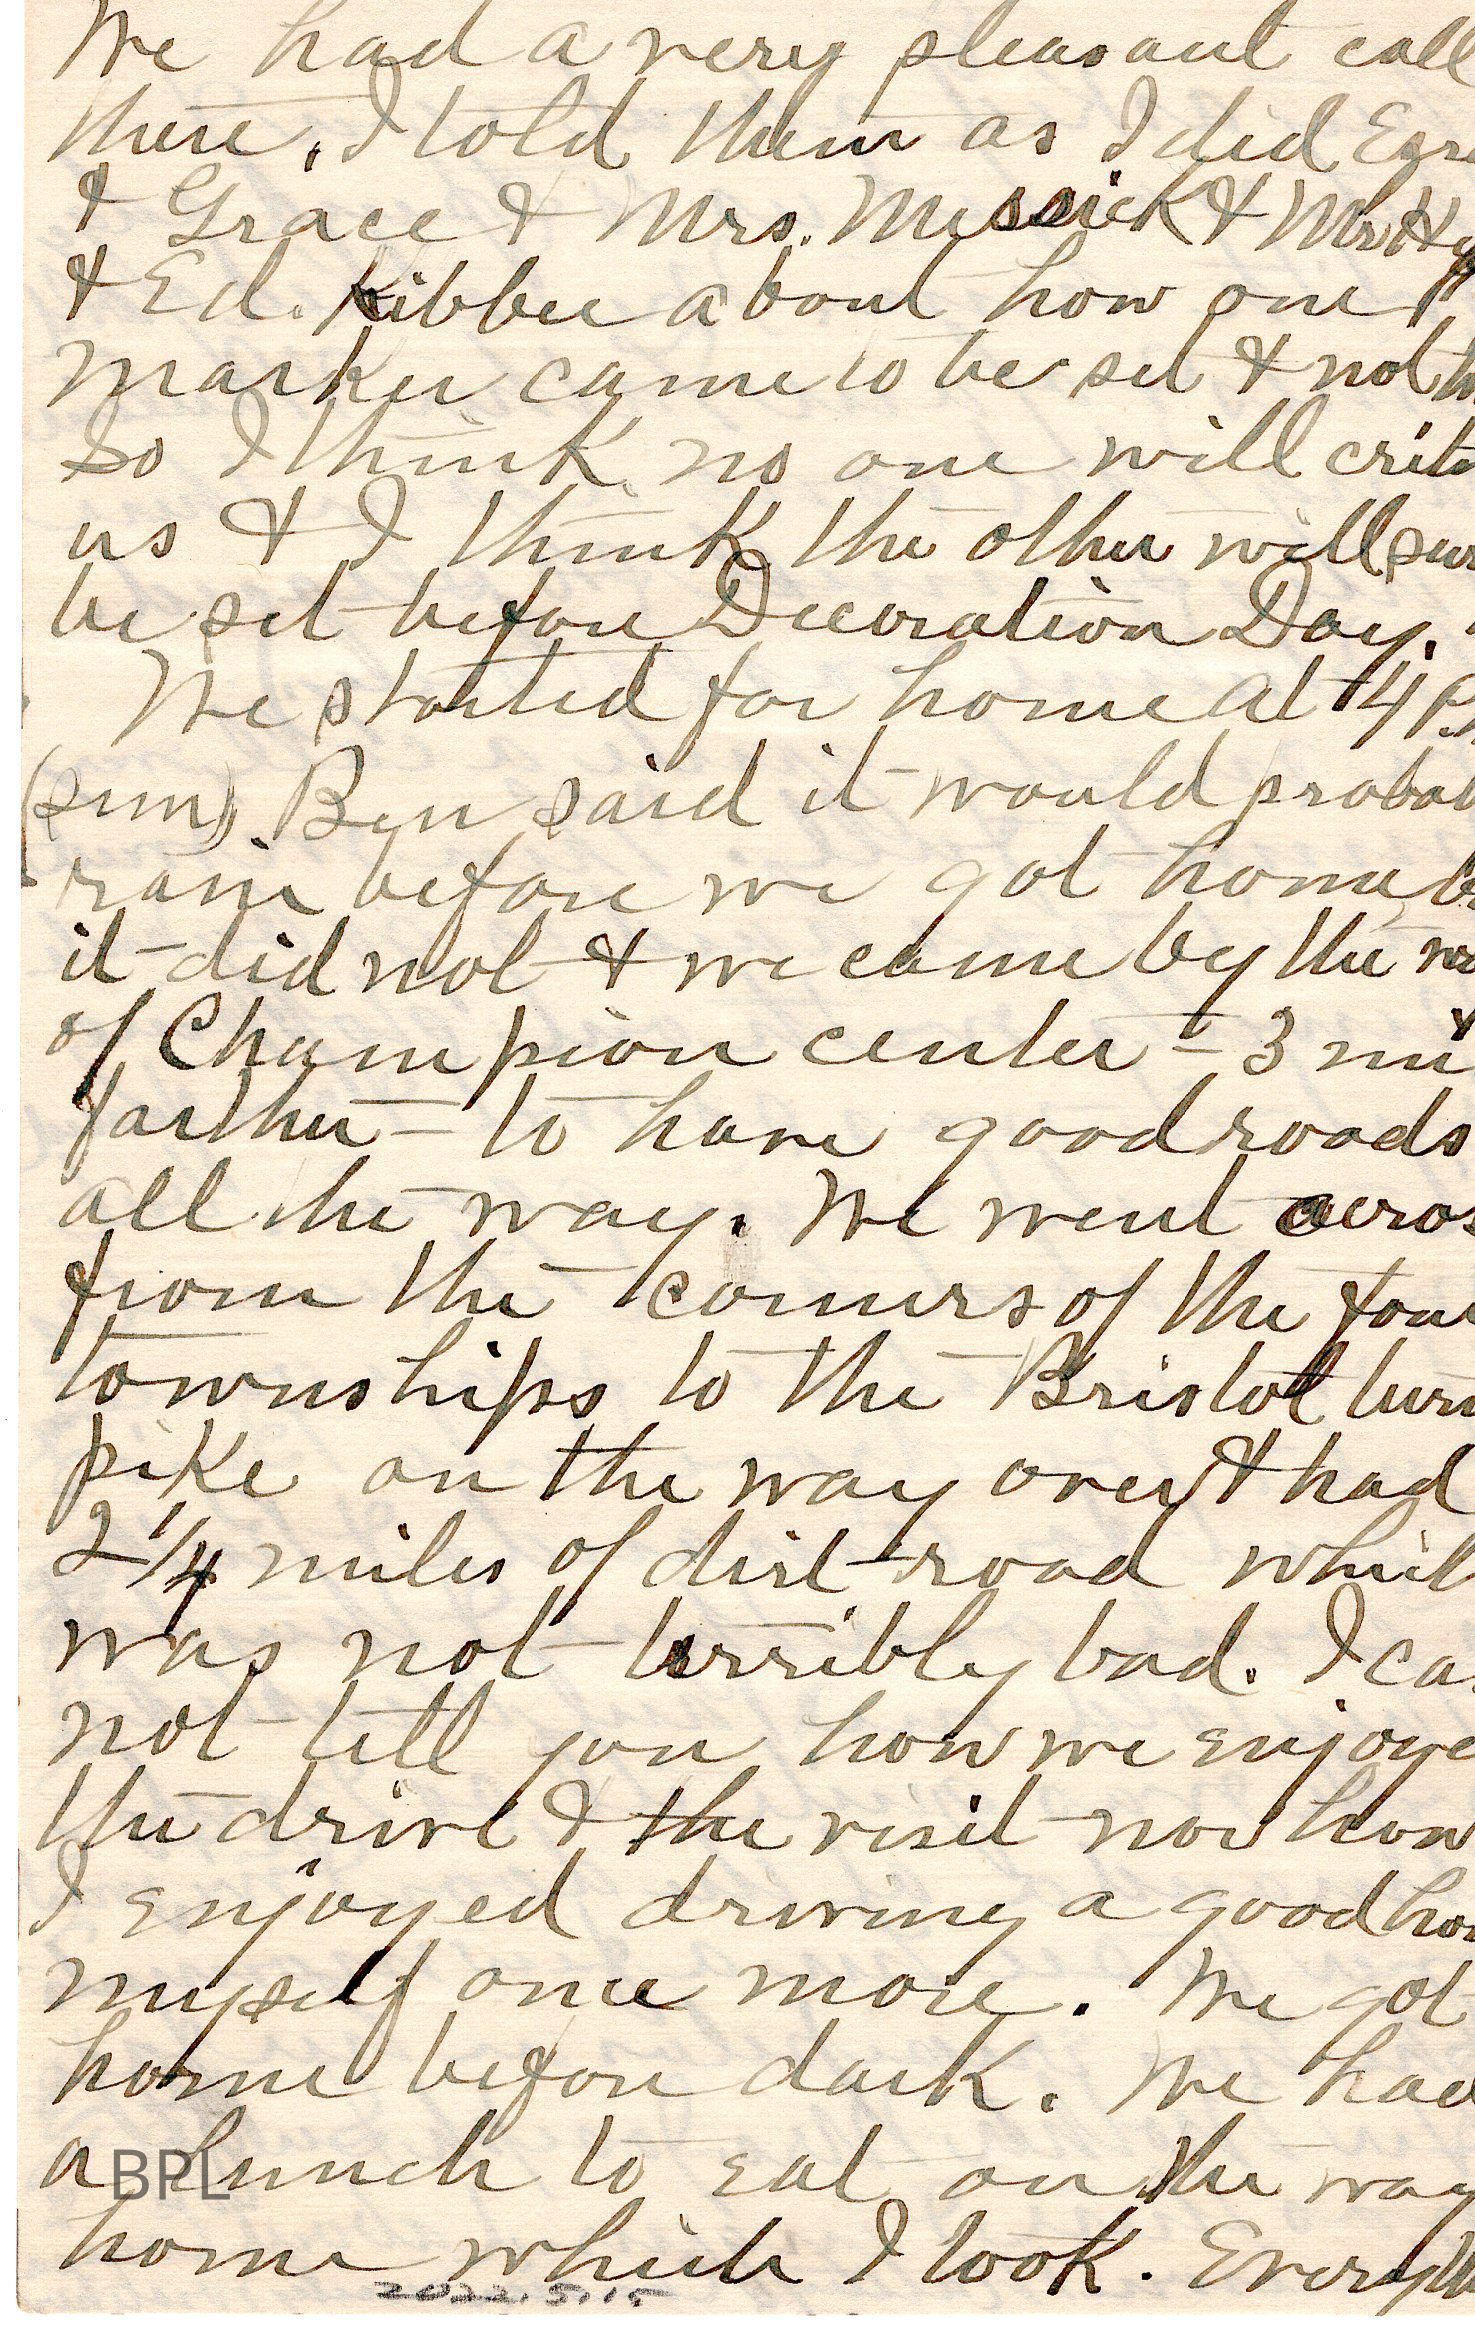 We had a very pleasant call
there, I told them as I did Ezra
& Grace & Mrs. Messick & Mr. Hy
& Ed. Kibbee about how one
marker came to be set & not th
So I think no one will crit
us & I think the other will sur
be set before Decoration Day.
We started for home at 4 P.M
(sun). Ben said it would probab
rain before we got home, b
it did not & we came by the
of Champion center - 3 mi
farther - to have good roads
all the way. We went across
from the corners of the four
townships to the Bristol turn
pike on the way over & had
2 1/4 miles of dirt road which
was not terribly bad. I ca
not tell you how we enjoye
the drive & the visit nor how
I enjoyed driving a good hor
myself once more. We got
home before dark. We had
a lunch to eat on the way
home which I took. Everyth
BPL
2022.5.15